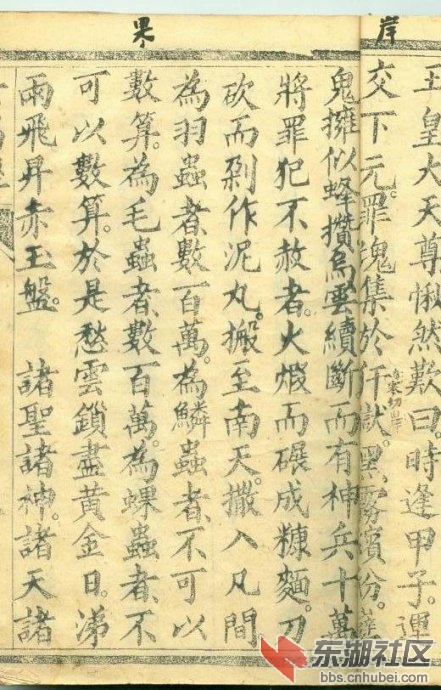 岸
果
玉皇大天尊愀然歎曰時逢甲子運
交下元罪魂集於犴獄黑雰繽分
鬼擁似蜂攢烏雲續斷而有神兵十萬
將罪犯不赦者火煅而碾成糠麵刀
砍而剁作泥丸搬至南天撒入凡間
為羽蟲者數百萬為鱗蟲者不可以
數算為毛蟲者數百萬為蜾蟲者不
可以數算於是愁雲鎖盡黃金日涕
雨飛昇赤玉盤 諸聖諸神諸天諸
东湖社区
bbs.cnhubei.com